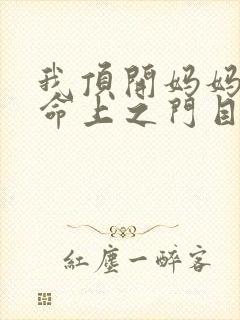 我頂開媽媽
命上之門目
紅塵一醉客